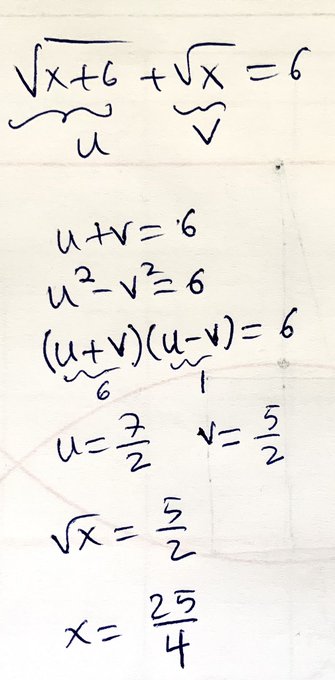 √(x+6) + √x = 6
u v
u+v = 6
u² - v² = 6
(u+v)(u-v) = 6
6 1
u = 7/2 v = 5/2
√x = 5/2
x = 25/4